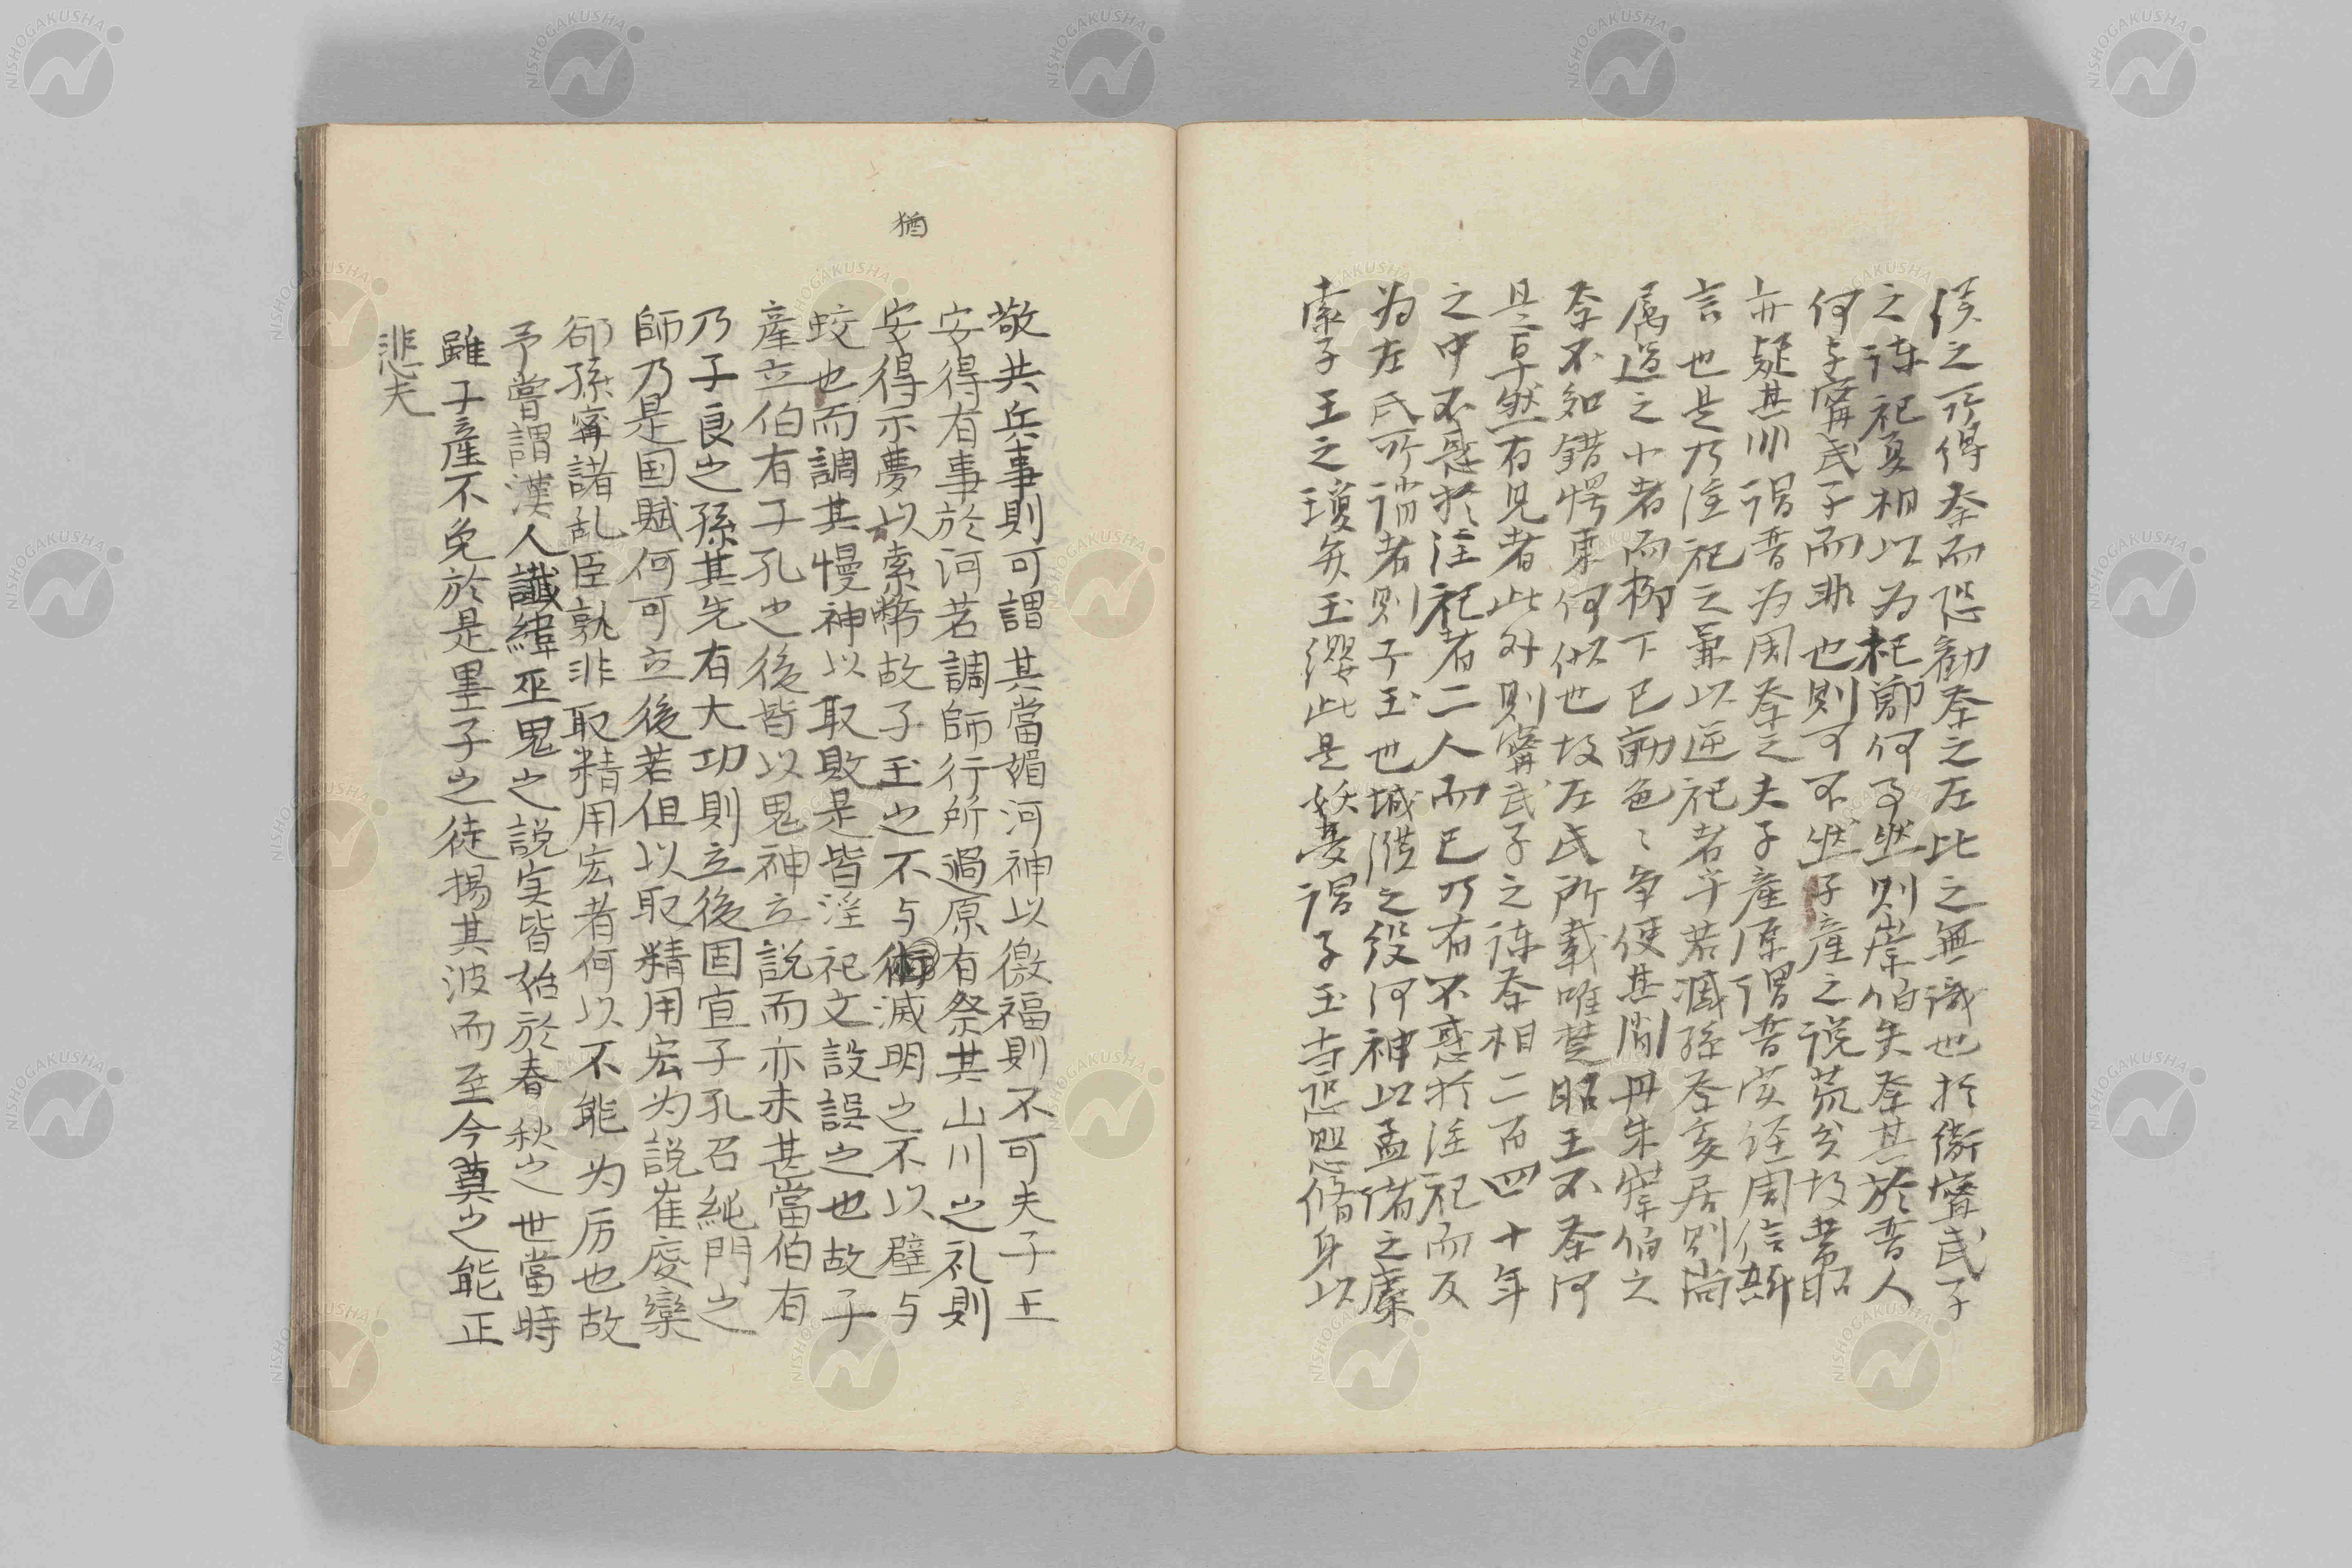 侯之所得祭而恐勸祭之左比之無識也於衛甯武子
之諫祀夏相以為杞鄫何事然則崇伯失祭其於晋人
何与甯武子而非也則可不然子産之説荒矣故黄昭
亦疑其川謂晋為周祭之夫子産原謂晋実経周信斯
言也是乃淫祀之兼以逆祀者乎若臧孫祭爰居則尚
属過之小者而柳下已勃色〻争使其聞丹朱崇伯之
祭不知錯愕更何似也故左氏所載唯楚昭王不祭河
是卓然有見者此外則甯武子之諫祭相二百四十年
之中不惑於淫祀者二人而已乃有不惑於淫祀而反
為左氏所誚者則子玉也城濮之役河神以孟諸之麋
索子玉之瓊弁玉纓此是妖夢謂子玉当恐懼脩身以
敬共兵事則可謂其當媚河神以徼福則不可夫子玉
安得有事於河若謂師行所過原有祭其山川之礼則
安得示夢以索幣故子玉也不与滅明之不以璧与
猶
蛟也而謂其慢神以取敗是皆淫祀文設誤之也故子
産立伯有子孔之後皆以鬼神立説而亦未甚當伯有
乃子良之孫其先有大功則立後固宜子孔召純門之
師乃是国賊何可立後若但以取精用宏為説崔慶欒
郤孫甯諸乱臣孰非取精用宏者何以不能為厉也故
予嘗謂漢人讖緯巫鬼之説実皆始於春秋之世當時
雖子産不免於是墨子之徒揚其波而至今莫之能正
悲夫